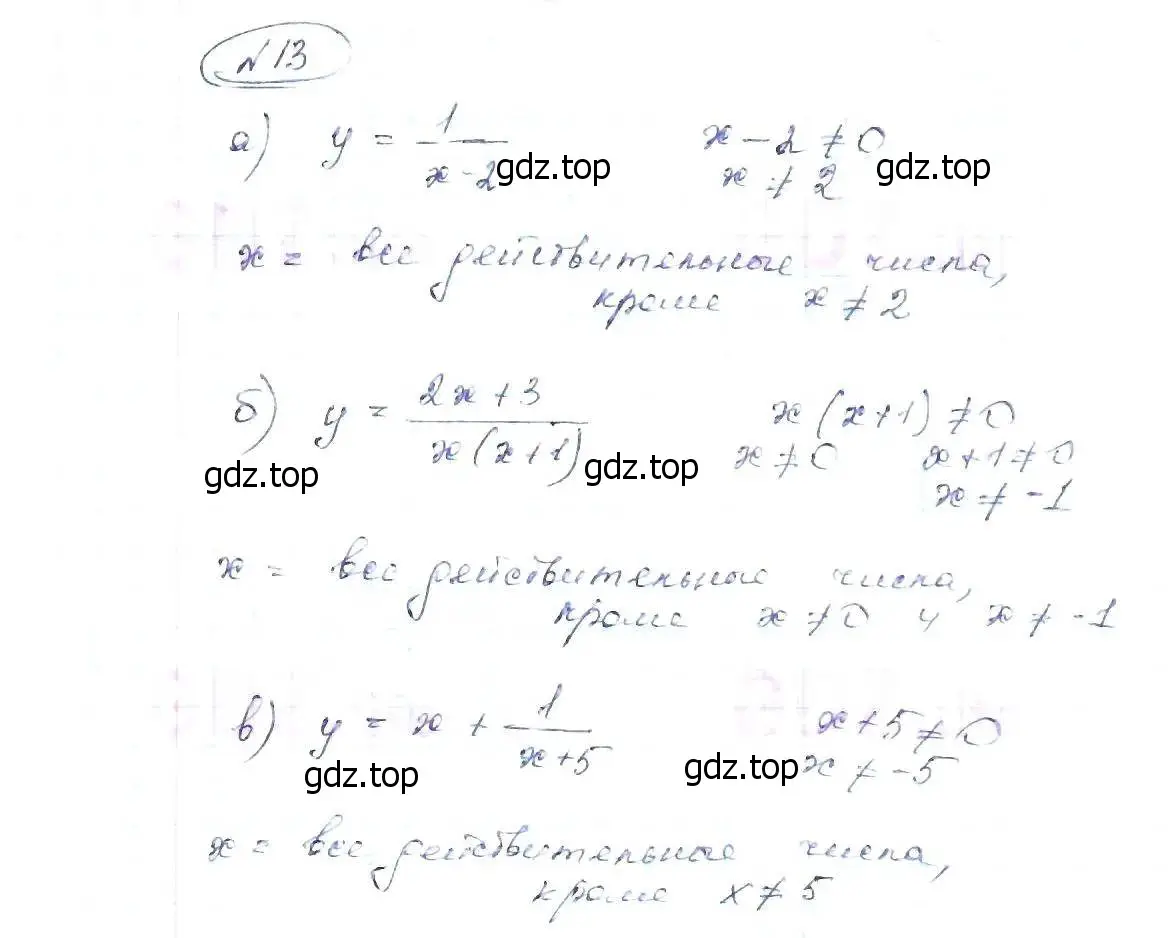 № 13
а) y = 1/(x - 2) x - 2 ≠ 0
gdz.top x ≠ 2 gdz.top
x = все действительные числа,
кроме x ≠ 2
б) y = (2x + 3)/(x(x+1)) x(x+1) ≠ 0
gdz.top gdz.top x ≠ 0 x+1 ≠ 0
x ≠ -1
x = все действительные числа,
кроме x ≠ 0 и x ≠ -1
в) y = x + 1/(x+5) x+5 ≠ 0
gdz.top gdz.top x ≠ -5
x = все действительные числа,
кроме x ≠ 5